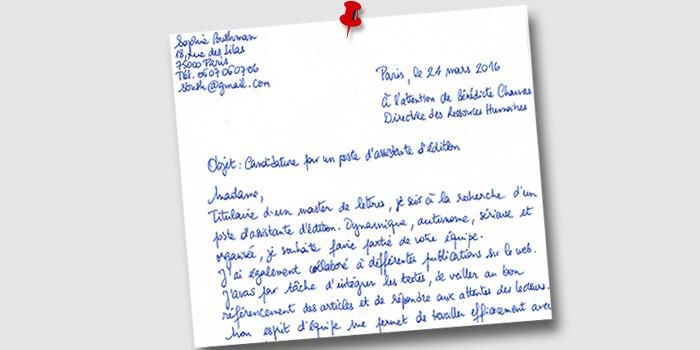 Sophie Bushman
18, rue des Lilas
75000 Paris
Tél. 0607060706
sbush@gmail.com
Paris, le 24 mars 2016
à l'attention de Bénédicte Chauvas
Directrice des Ressources Humaines
Objet : Candidature pour un poste d'assistante d'édition
Madame,
Titulaire d'un master de lettres, je suis à la recherche d'un
poste d'assistante d'édition. Dynamique, autonome, sérieuse et
organisée, je souhaite faire partie de votre équipe.
J'ai également collaboré à différentes publications sur le web.
J'avais pour tâche d'intégrer les textes, de veiller au bon
référencement des articles et de répondre aux attentes des lecteurs.
Mon esprit d'équipe me permet de travailler efficacement avec